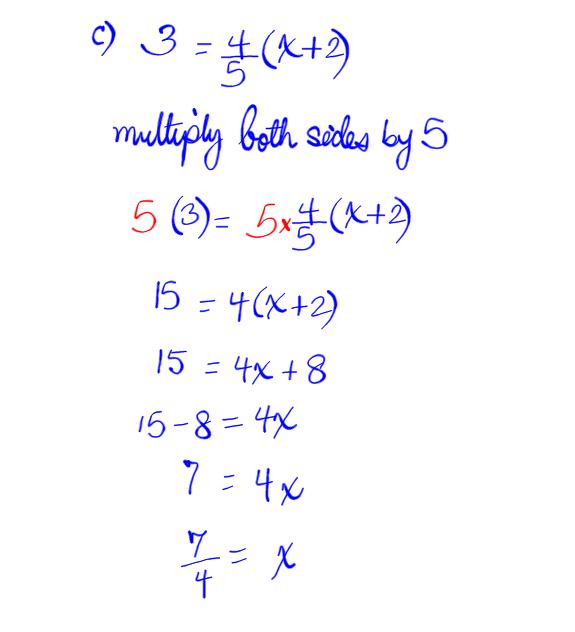 c) 3 = 4/5 (x+2)
multiply both sides by 5
5 (3) = 5 x 4/5 (x+2)
15 = 4(x+2)
15 = 4x + 8
15 - 8 = 4x
7 = 4x
7/4 = x